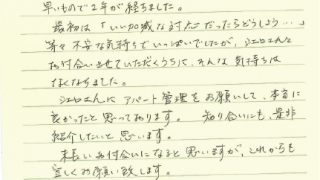 早いもので2年が経ちました。
最初は「いい加減な対応だったらどうしよう…」
等々不安な気持ちでいっぱいでしたが、江口さんと
お付合いさせていただくうちに、そんな気持ちは
なくなりました。
江口さんにアパート管理をお願いして、本当に
良かったと思っております。知り合いにも、是非
紹介したいと思います。
末長いお付合いになると思いますが、これからも
宜しくお願い致します。